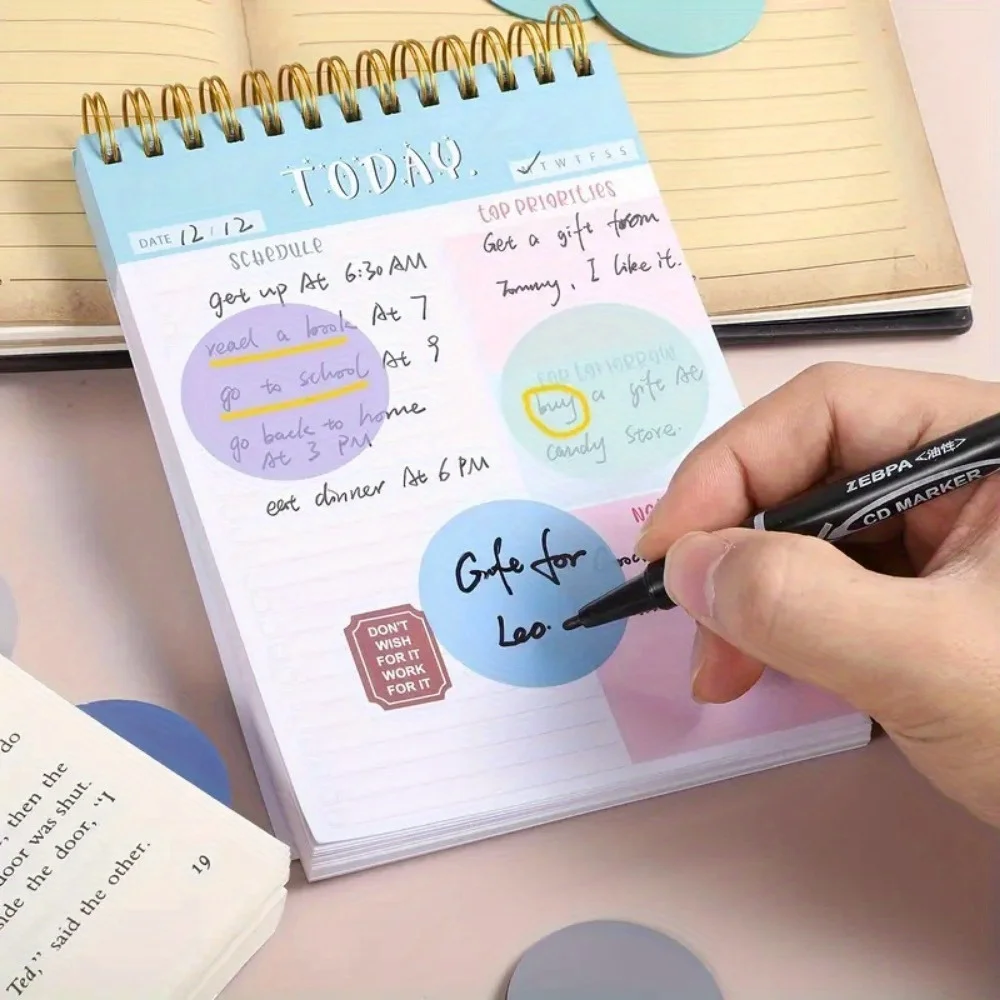 TODAY.
✓ T W T F S S
DATE 12 / 12
SCHEDULE
get up At 6:30 AM
read a book At 7
go to school At 9
go back to home
At 3 PM.
eat dinner At 6 PM
TOP PRIORITIES
Get a gift from
Tommy, I like it.
FOR TOMORROW
buy a gift At
candy store.
Gife for
Leo.
DON'T
WISH
FOR IT
WORK
FOR IT
ZEBPA <油性>
CD MARKER
do
, then the
door was shut.
side the door, "I
Ted," said the other.
19